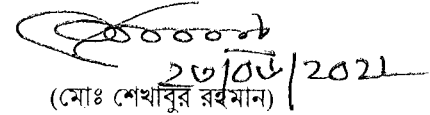 ২৩/০৬/2021
(মোঃ শেখাবুর রহমান)